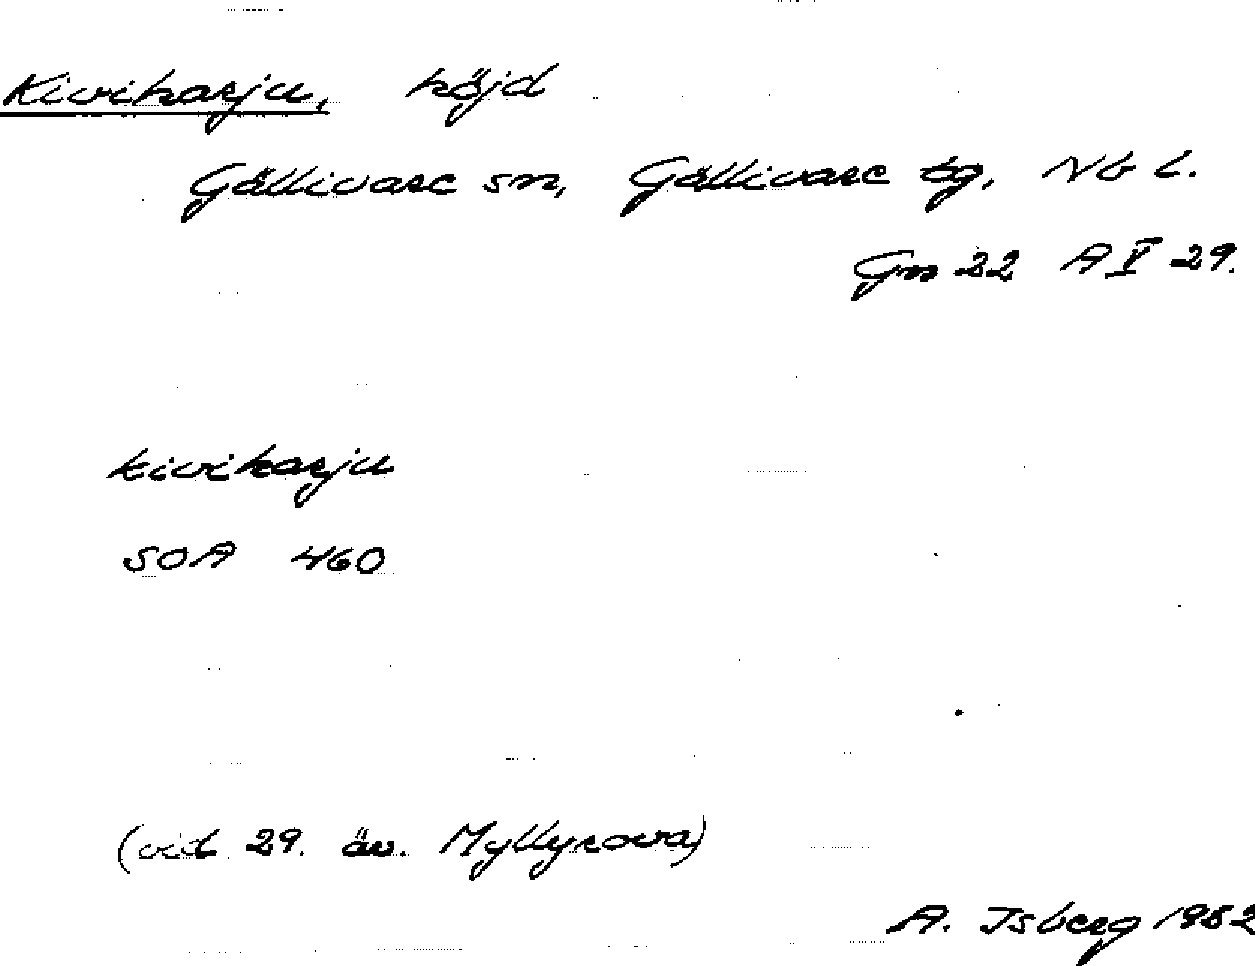 Kiviharju, höjd
Gällivare sn, Gällivare tg, Nb l.
Gm 22 A V 29.
kiviharju
SOA 460
(vid 29. äv. Myllyrova)
A. Isberg 1982